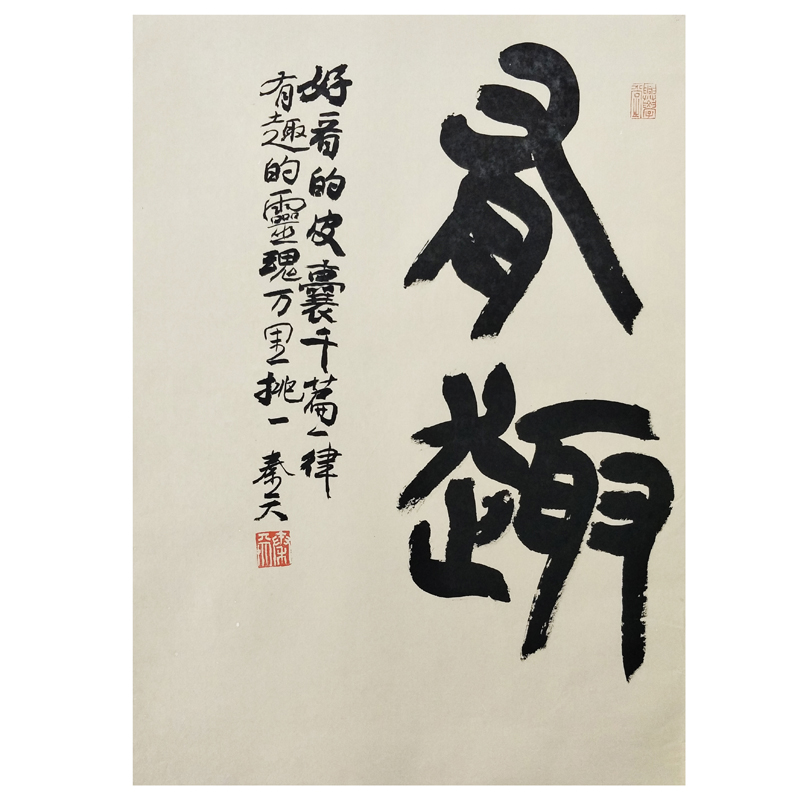 有趣
好看的皮囊千篇一律
有趣的靈魂万里挑一 秦天
秦天